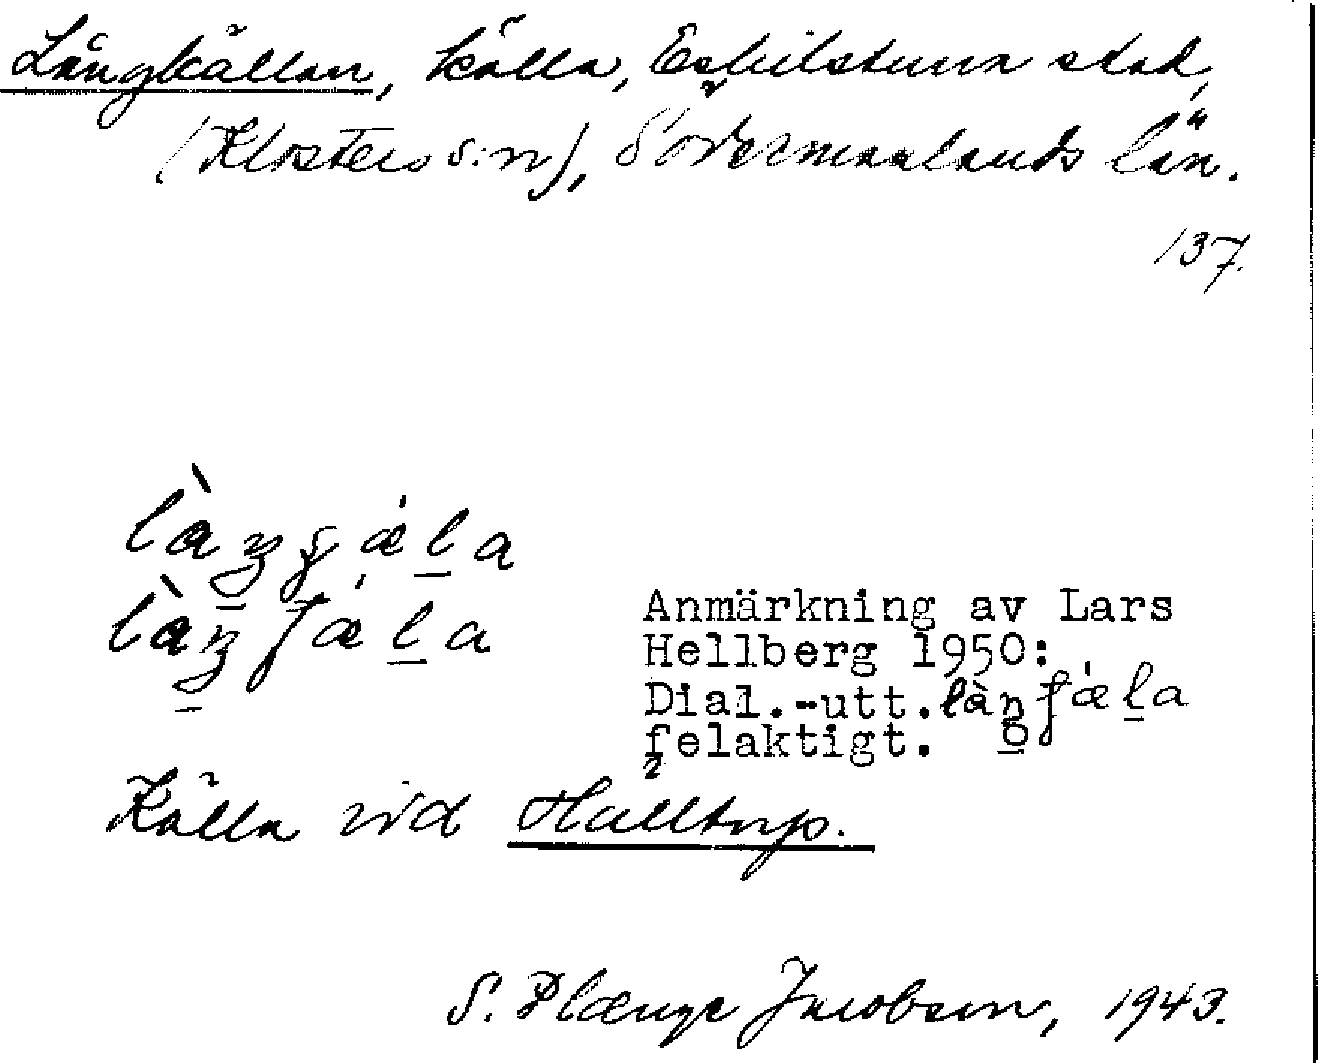 Långkällan, källa, Eskilstuna stad,
(Klosters s:n), Södermanlands län.
137.
Anmärkning av Lars
Hellberg 1950:
Dial.-utt.
felaktigt.
Källa vid Halltorp.
S. Plænge Jacobson, 1943.